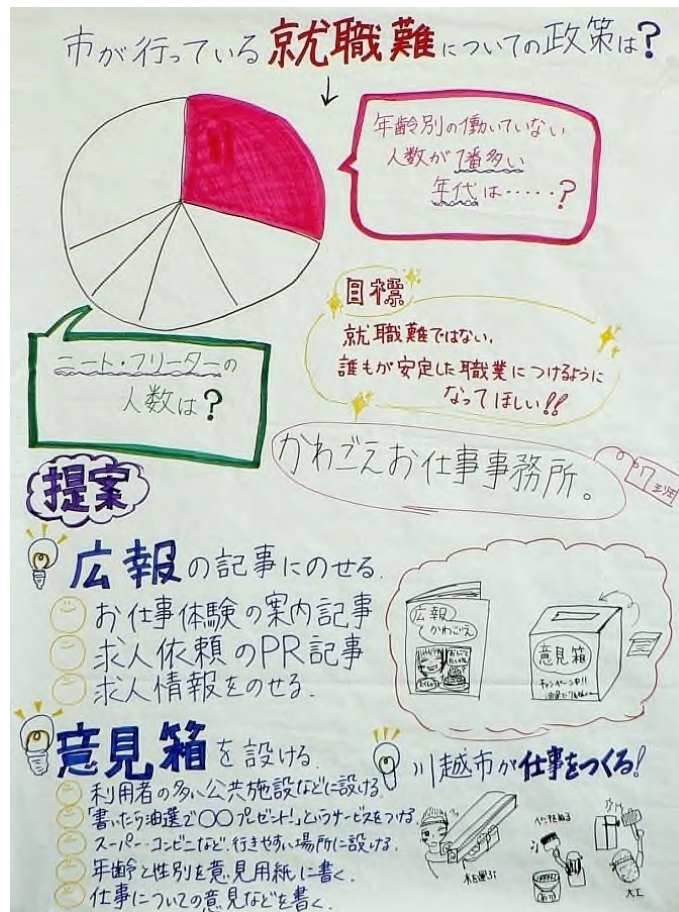 市が行っている就職難についての政策は?
年齢別の働いていない
人数が1番多い
年代は……?
ニート・フリーターの
人数は?
目標
就職難ではない、
誰もが安定した職業につけるように
なってほしい!!
かわごえお仕事事務所。
7班
提案
広報の記事にのせる。
お仕事体験の案内記事
求人依頼のPR記事
求人情報をのせる。
広報
かわごえ
意見箱
キャンペーン中!!
意見箱を設ける
利用者の多い公共施設などに設ける
「書いたら油選で〇〇プレゼント!」というサービスをつける。
スーパー・コンビニなど、行きやすい場所に設ける。
年齢と性別を意見用紙に書く。
仕事についての意見などを書く。
川越市が仕事をつくる!
大工